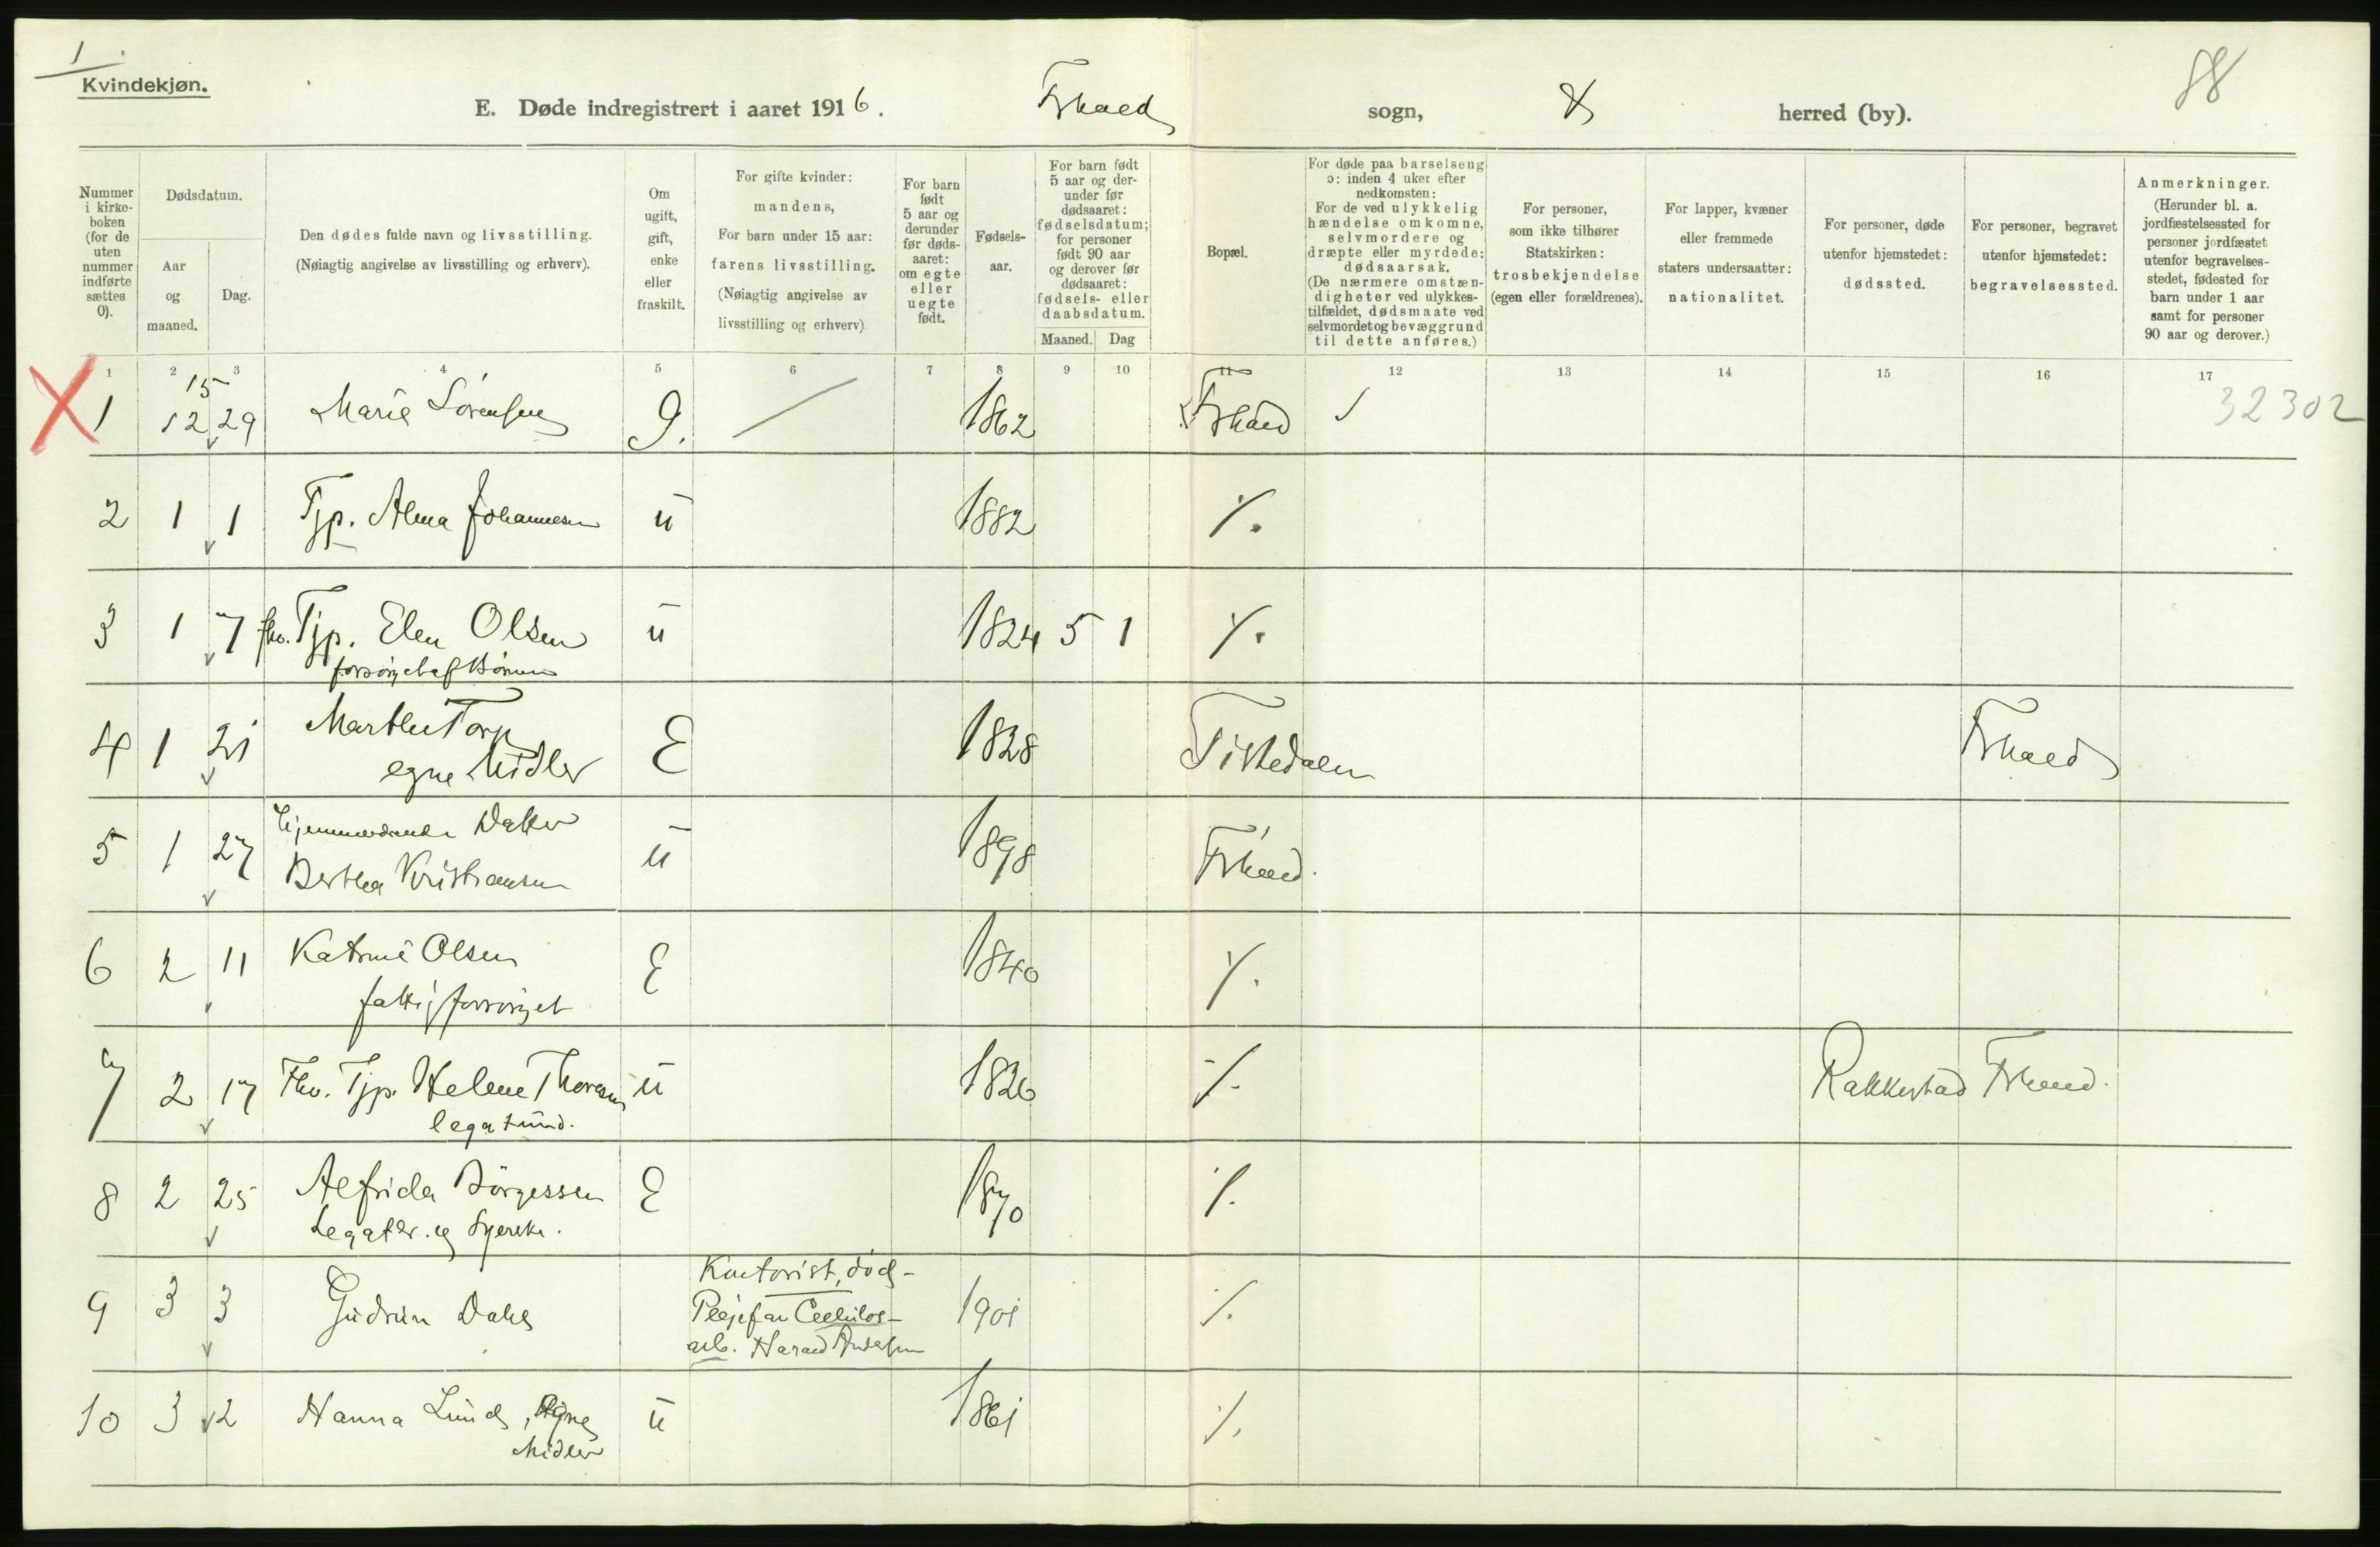 1
Kvindekjøn.
E. Døde indregistrert i aaret 1916. Frhald sogn, herred (by).
88
Nummer i kirke-boken (for de uten nummer indførte sættes 0).
Dødsdatum.
Aar og maaned.
Dag.
Den dødes fulde navn og livsstilling.
(Nøiagtig angivelse av livsstilling og erhverv).
Om ugift, gift, enke eller fraskilt.
For gifte kvinder: mandens,
For barn under 15 aar: farens livsstilling.
(Nøiagtig angivelse av livsstilling og erhverv)
For barn født 5 aar og derunder før døds-aaret: om egte eller uegte født.
Fødsels-aar.
For barn født 5 aar og der-under før dødsaaret: fødselsdatum; for personer født 90 aar og derover før dødsaaret: fødsels- eller daabsdatum.
Maaned. Dag
Bopæl.
For døde paa barselseng ɔ: inden 4 uker efter nedkomsten:
For de ved ulykkelig hændelse omkomne, selvmordere og dræpte eller myrdede: dødsaarsak.
(De nærmere omstæn-digheter ved ulykkes-tilfældet, dødsmaate ved selvmordet og bevæggrund til dette anføres.)
For personer, som ikke tilhører Statskirken: trosbekjendelse (egen eller forældrenes).
For lapper, kvæner eller fremmede staters undersaatter: nationalitet.
For personer, døde utenfor hjemstedet: dødssted.
For personer, begravet utenfor hjemstedet: begravelsessted.
Anmerkninger.
(Herunder bl. a. jordfæstelsessted for personer jordfæstet utenfor begravelses-stedet, fødested for barn under 1 aar samt for personer 90 aar og derover.)
1 2 3 4 5 6 7 8 9 10 11 12 13 14 15 16 17
15
X 1 12 29 Marie Sörensen g. 1862 Frhald 32302
2 1 1 Tjp. Alma Johannesen u 1882 ٪
3 1 7 fhv. Tjp. Elen Olsen u 1824 5 1 ٪
forsörget af Börnene
4 1 21 Marthe Torp E 1828 Tistedalen Frhald
egne Midler
5 1 27 Hjemmeværende Datter u 1898 Frhald.
Bertha Kristiansen
6 2 11 Katrine Olsen E 1840 ٪
fattigforsörget
7 2 17 Fhv. Tjp. Helene Thoresen u 1826 ٪ Rakkestad Frhald.
legatund.
8 2 25 Alfrida Börgessen E 1870 ٪
Legater. og Syerske.
9 3 3 Gudrun Dahl Kontorist, död - 1901 ٪
Plejefar Cellulos-
arb. Harald Andersen
10 3 2 Hanna Lund, Egne u 1861 ٪
Midler